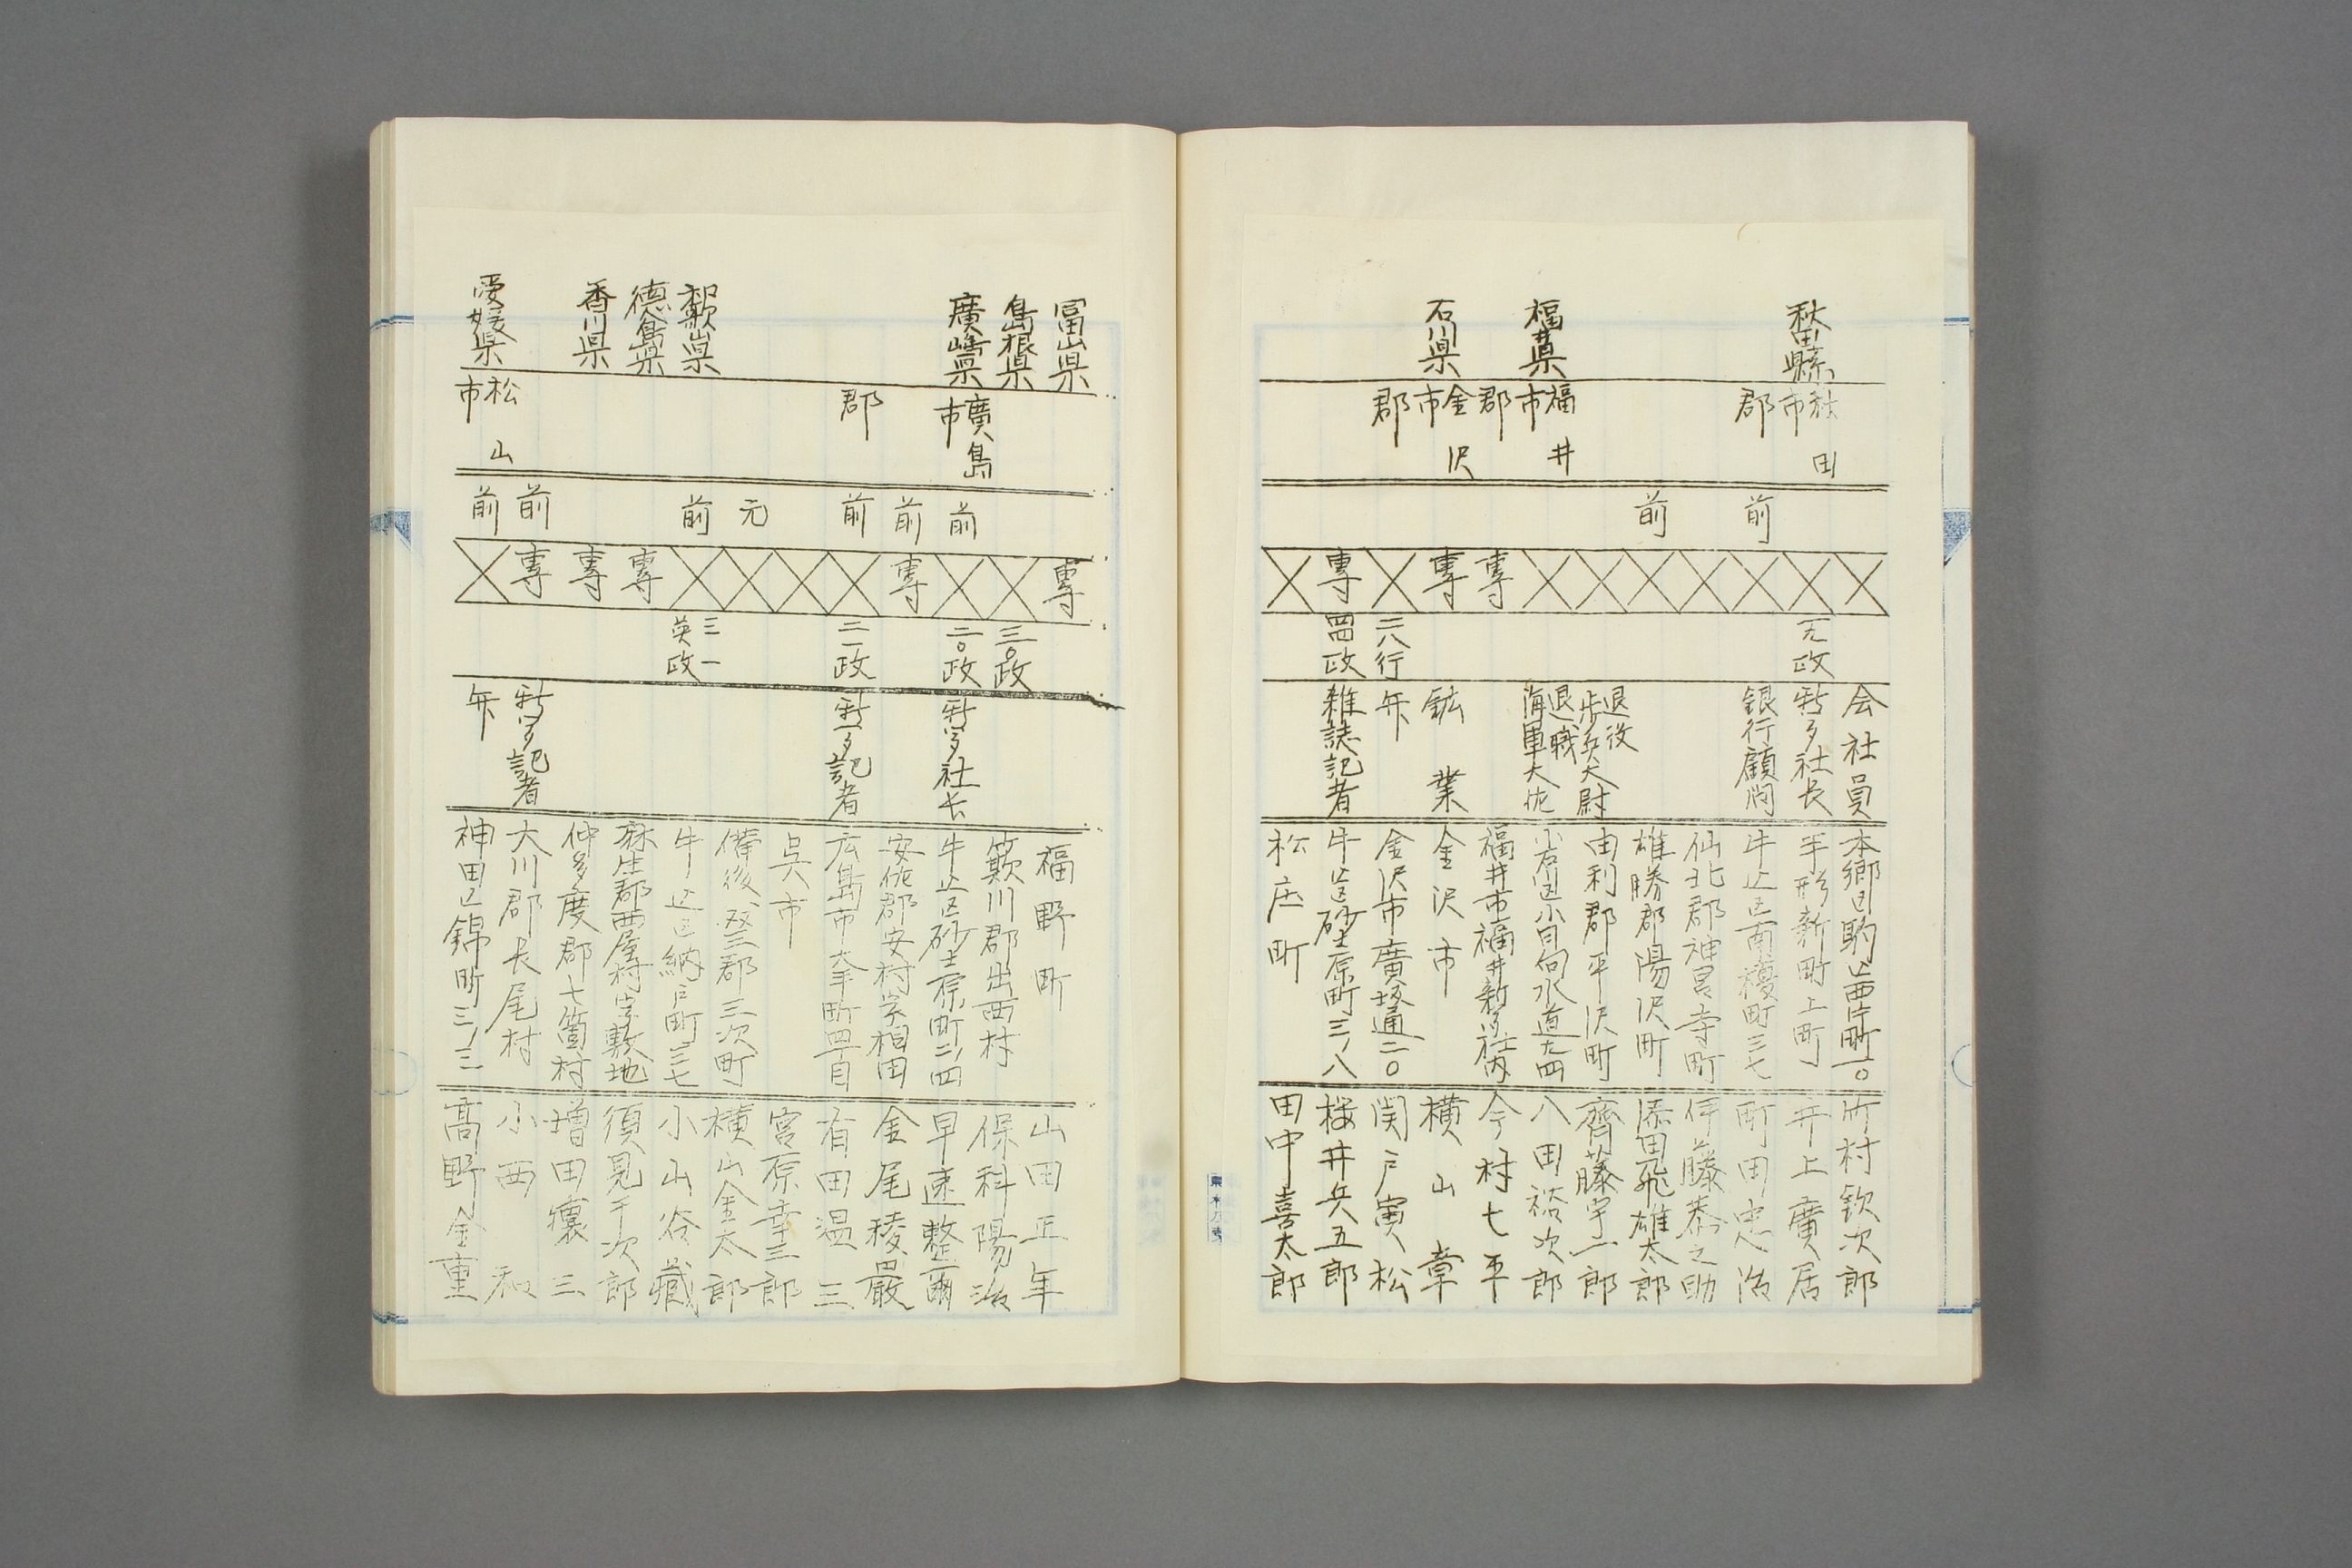 秋田縣
秋田市
会社員
本郷区駒込西片町一〇
竹村欽次郎
一九政
新聞社長
手形新町上町
井上廣居
郡
前
銀行顧問
牛込区南榎町三七
町田忠治
仙北郡神宮寺町
伊藤恭之助
前
雄勝郡湯沢町
添田飛雄太郎
退役歩兵大尉
由利郡平沢町
齊藤宇一郎
福井県
福井市
退職海軍大佐
小石川区小日向水道町九四
八田裕次郎
郡
専
福井市福井新聞社内
今村七平
石川県
金沢市
専
鉱業
金沢市
横山章
郡
二八行
弁
金沢市廣坂通二〇
関戸寅松
専
四四政
雑誌記者
牛込区砂土原町三ノ八
桜井兵五郎
松任町
田中喜太郎
冨山県
専
福野町
山田正年
島根県
三〇政
簸川郡出西村
保科陽治
廣島県
廣島市
前
二〇政
新聞社長
牛込区砂土原町二ノ四
早速整爾
前
専
安佐郡安村字相田
金尾稜嚴
郡
前
二一政
新聞記者
広島市大手町四丁目
有田温三
呉市
宮原幸三郎
元
備後双三郡三次町
横山金太郎
歌山県
前
三一英政
牛込区納戸町三七
小山谷藏
德島県
専
麻生郡西尾村字敷地
須見千次郎
香川県
専
仲多度郡七箇村
増田穣三
前
専
新聞記者
大川郡長尾村
小西和
愛媛県
松山市
前
弁
神田区錦町三ノ三
高野金重